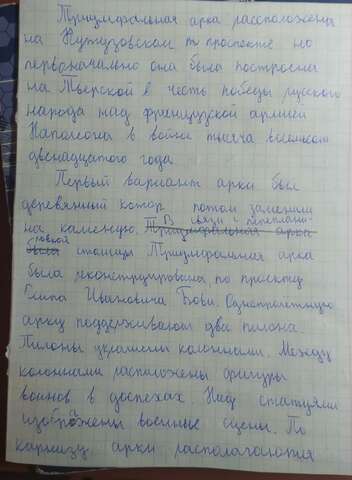 Триумфальная арка расположена
на Кутузовском проспекте но
первоначально она была построена
на Тверской в честь победы русского
народа над французской армией
Наполеона в войне тысяча восемьсот
двенадцатого года
Первый вариант арки был
деревянный котор потом заменили
на каменную. Триумфальная арка В связи с
была стоимы Триумфальная арка
была реконструирована по проекту
Осипа Ивановича Бови. Однопролётную
арку поддерживают два пилона.
Пилоны украшены колоннами. Между
колоннами расположены фигуры
воинов в доспехах. Над статуями
изображены военные сцены. По
карнизу арки располагаются